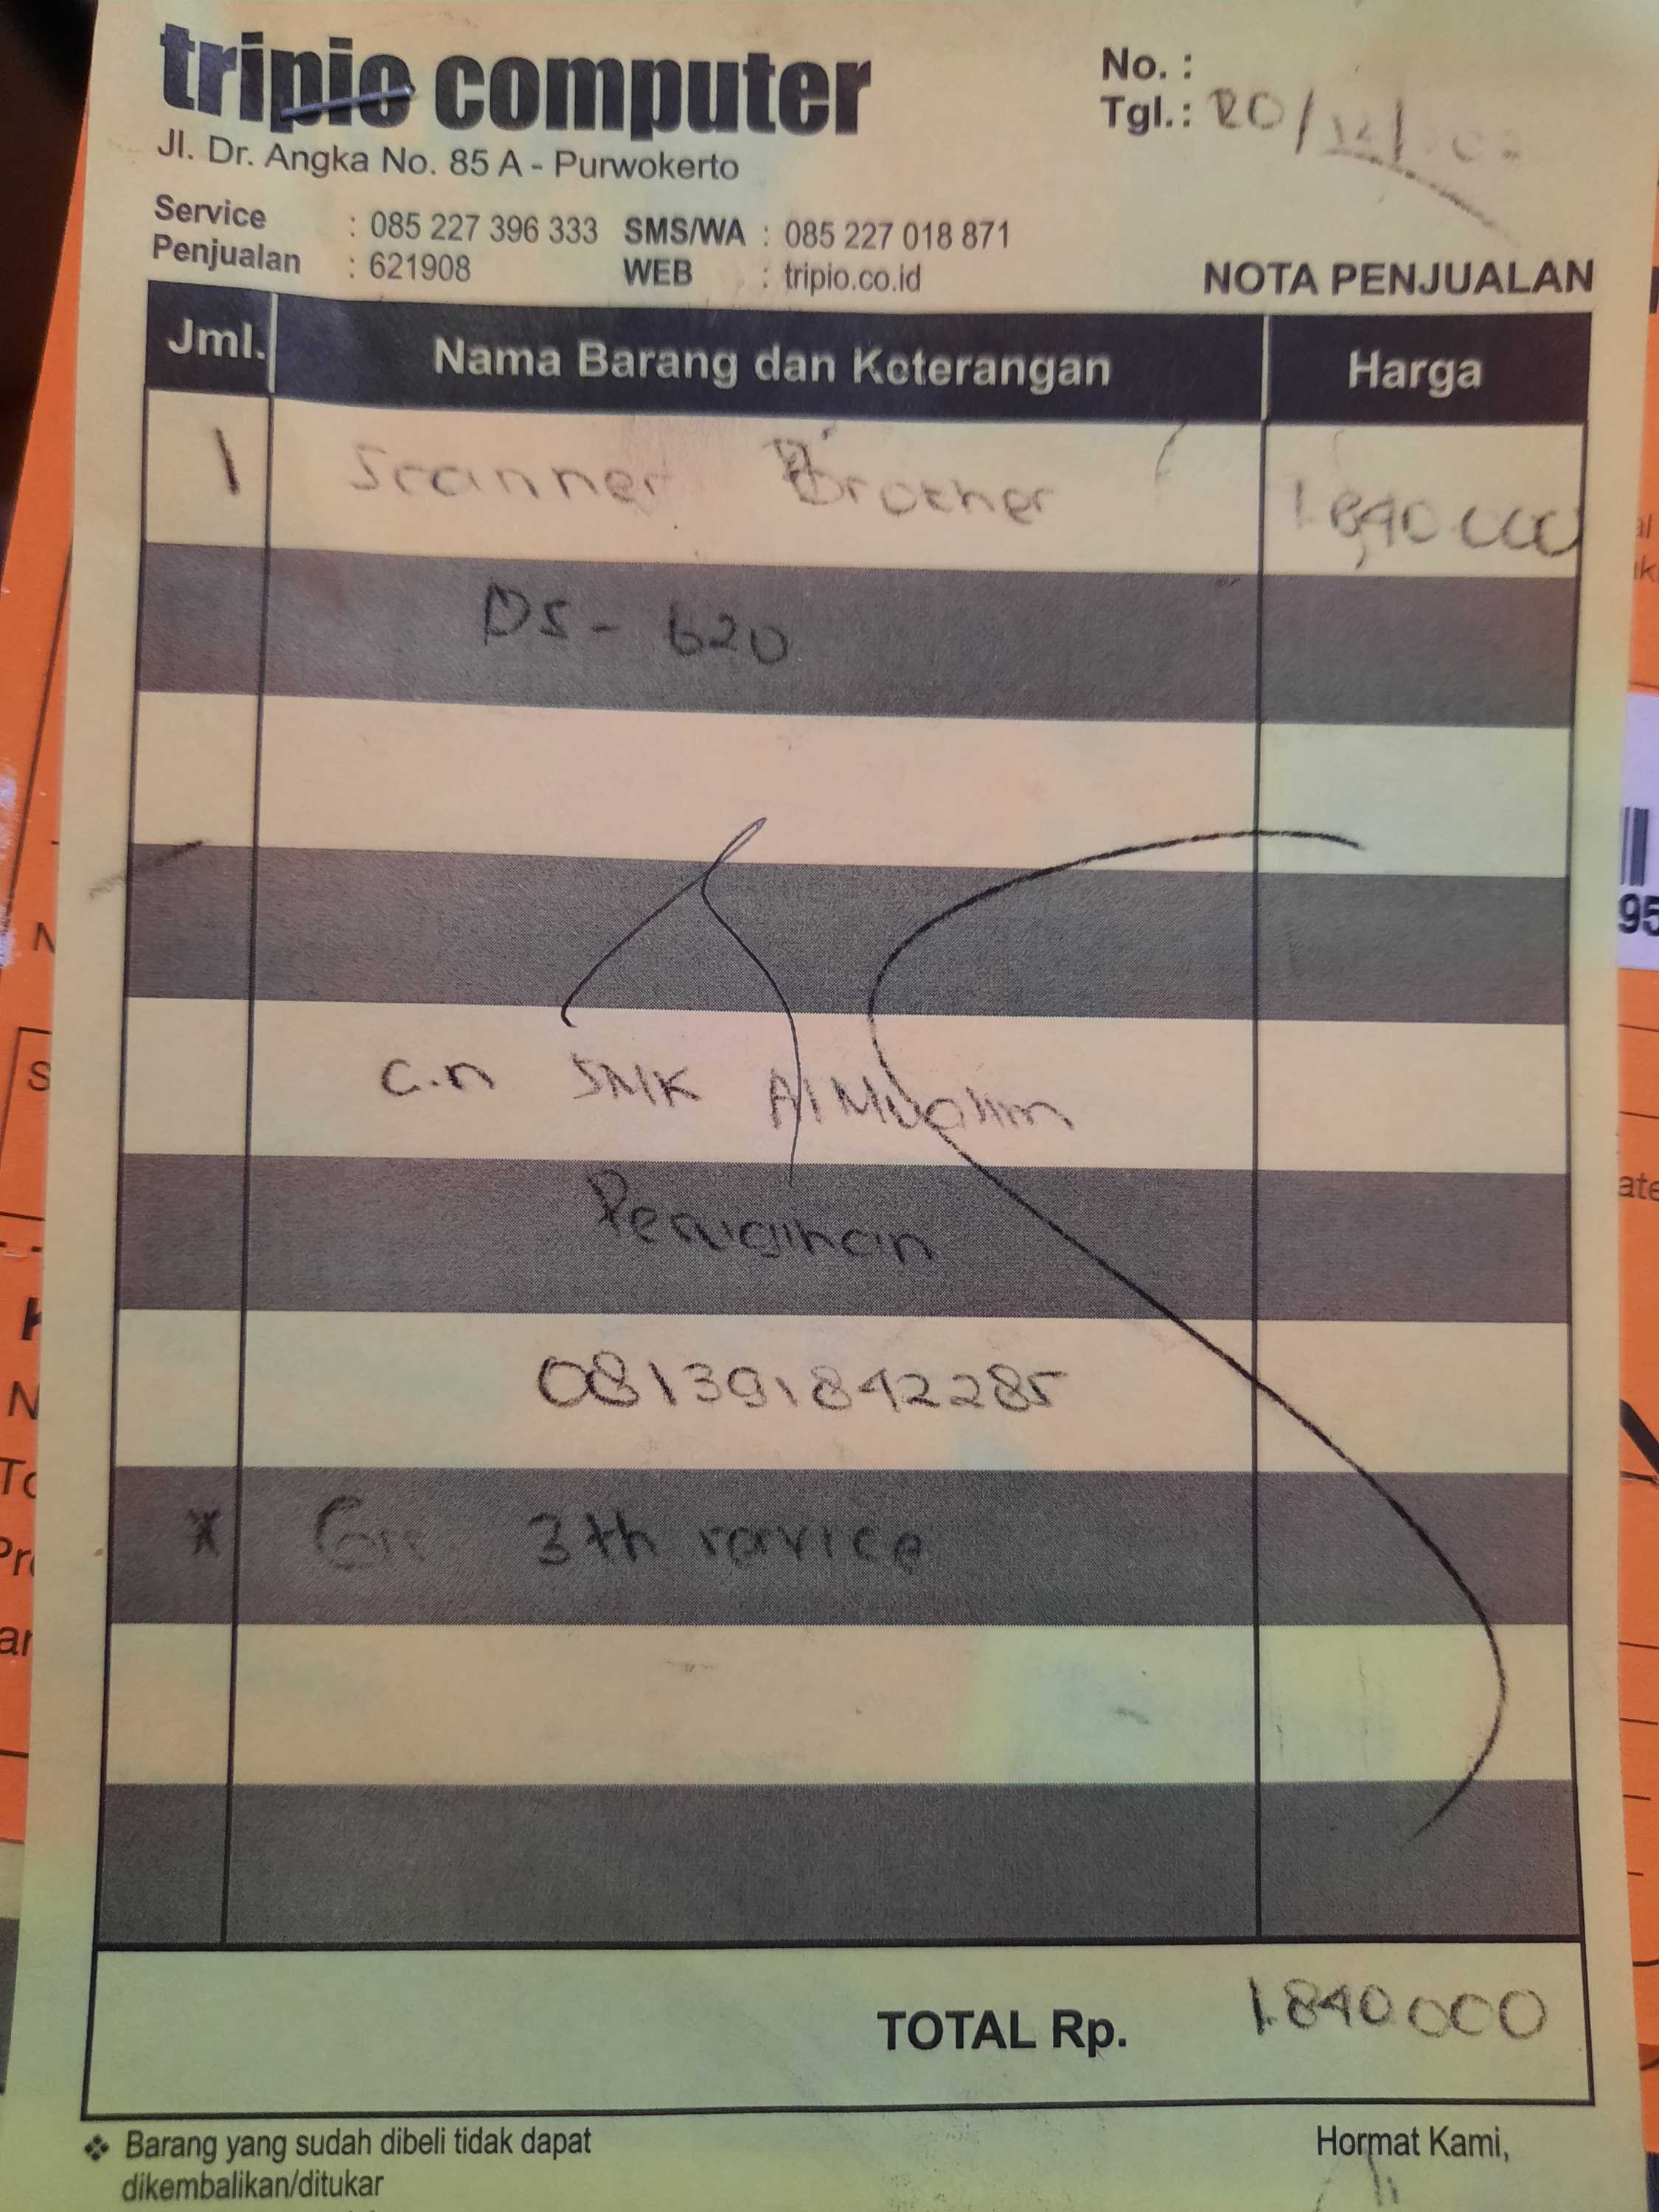 tripio computer
Jl. Dr. Angka No. 85 A - Purwokerto
No. :
Tgl.: 20/12/
Service : 085 227 396 333 SMS/WA : 085 227 018 871
Penjualan : 621908 WEB : tripio.co.id
NOTA PENJUALAN
Jml. Nama Barang dan Keterangan Harga
1 Scanner Brother 1.840.000
DS - 620
a.n SMK Al Mualim
081391842285
* 3th service
TOTAL Rp. 1.840.000
❖ Barang yang sudah dibeli tidak dapat
dikembalikan/ditukar
Hormat Kami,
95